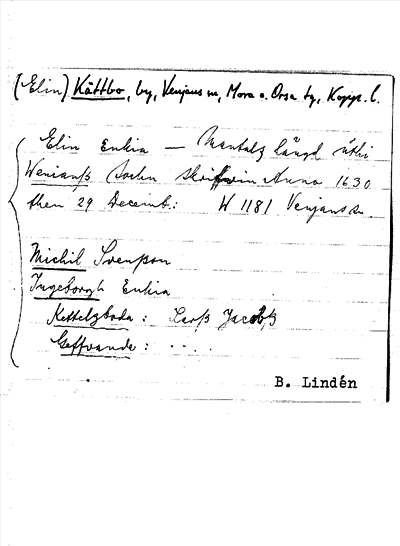 (Elin) Kättbo, by, Venjans sn, Mora o. Orsa tg, Kopp. l.
Elin Enkia — Mantals längd uthi
Wenianß Sochn skrifwin Anno 1630
then 29 Decemb: W 1181 Venjans sn
Michil Svenßon
Ingeborgh Enkia
Kettelzboda : Larß Jacobß
Geffvande : . . . .
B. Lindén